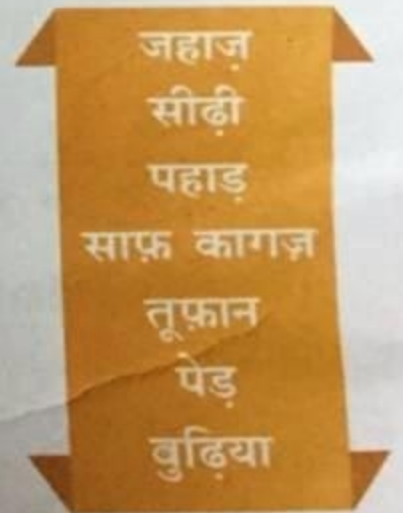 जहाज़
सीढ़ी
पहाड़
साफ़ कागज़
तूफ़ान
पेड़
वुढ़िया